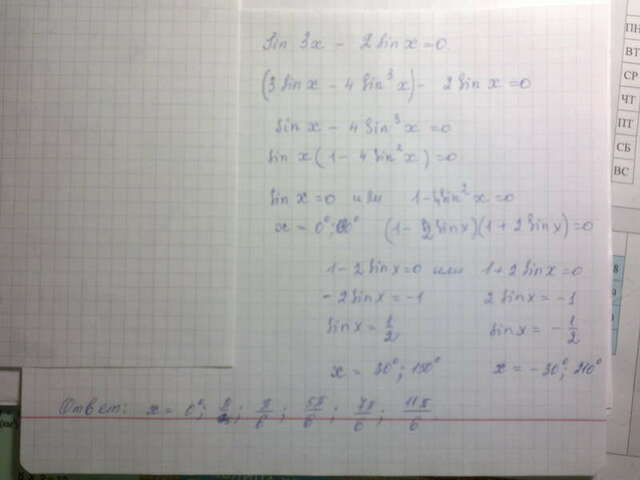 Sin 3x - 2 sin x = 0
(3 sin x - 4 sin³ x) - 2 sin x = 0
sin x - 4 sin³ x = 0
sin x (1 - 4 sin² x) = 0
sin x = 0 или 1 - 4 sin² x = 0
x = 0°; (1 - 2 sin x)(1 + 2 sin x) = 0
1 - 2 sin x = 0 или 1 + 2 sin x = 0
- 2 sin x = -1 2 sin x = -1
sin x = 1/2 sin x = - 1/2
x = 30°; 150° x = -30°; 210°
Ответ: x = 0°; π/6; 5π/6; 7π/6; 11π/6
ПН
ВТ
СР
ЧТ
ПТ
СБ
ВС
8